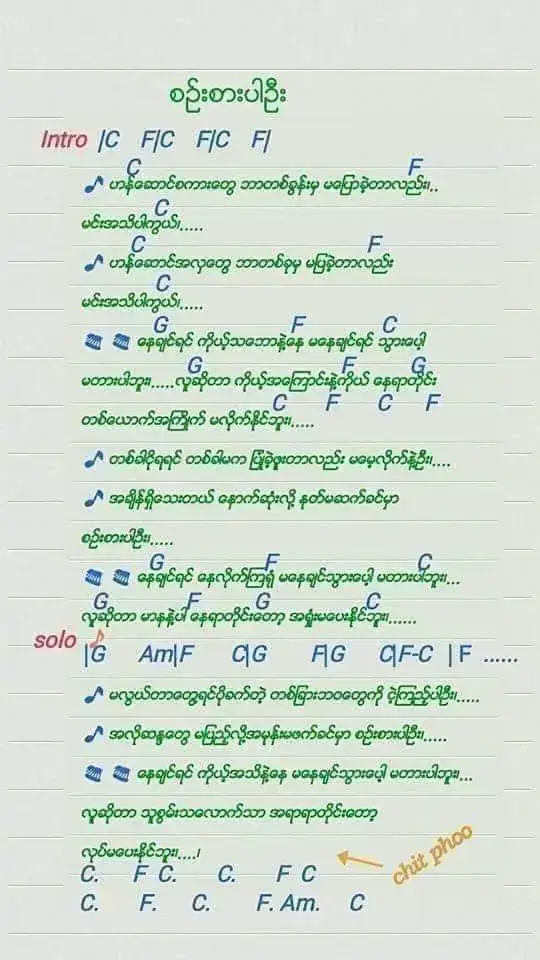 စဉ်းစားပါဦး
Intro |C F|C F|C F|
C F
ဟန်ဆောင်စကားတွေ ဘာတစ်ခွန်းမှ မပြောခဲ့တာလည်း၊..
C
မင်းအသိပါကွယ်၊.....
C F
ဟန်ဆောင်အလှတွေ ဘာတစ်ခုမှ မပြခဲ့တာလည်း
C
မင်းအသိပါကွယ်၊.....
G F C
နေချင်ရင် ကိုယ့်သဘောနဲ့နေ မနေချင်ရင် သွားပေါ့
G F G
မတားပါဘူး၊.....လူဆိုတာ ကိုယ့်အကြောင်းနဲ့ကိုယ် နေရာတိုင်း
C F C F
တစ်ယောက်အကြိုက် မလိုက်နိုင်ဘူး၊.....
တစ်ခါငိုရရင် တစ်ခါမက ပြုံးခဲ့ဖူးတာလည်း မမေ့လိုက်နဲ့ဦး၊....
အချိန်ရှိသေးတယ် နောက်ဆုံးလို့ နုတ်မဆက်ခင်မှာ
စဉ်းစားပါဦး၊.....
G F C
နေချင်ရင် နေလိုက်ကြရုံ မနေချင်သွားပေါ့ မတားပါဘူး၊...
G F G C
လူဆိုတာ မာနနဲ့ပါ နေရာတိုင်းတော့ အရှုံးမပေးနိုင်ဘူး၊......
solo
|G Am|F C|G F|G C|F-C | F ......
မလွယ်တာတွေ့ရင်ပိုခက်တဲ့ တစ်ခြားဘဝတွေကို ငဲ့ကြည့်ပါဦး၊.....
အလိုဆန္ဒတွေ မပြည့်လို့အမုန်းမဖက်ခင်မှာ စဉ်းစားပါဦး၊.....
နေချင်ရင် ကိုယ့်အသိနဲ့နေ မနေချင်သွားပေါ့ မတားပါဘူး၊...
လူဆိုတာ သူ့စွမ်းသလောက်သာ အရာရာတိုင်းတော့
လုပ်မပေးနိုင်ဘူး၊....၊
chit phoo
C. F C. C. F C
C. F. C. F. Am. C